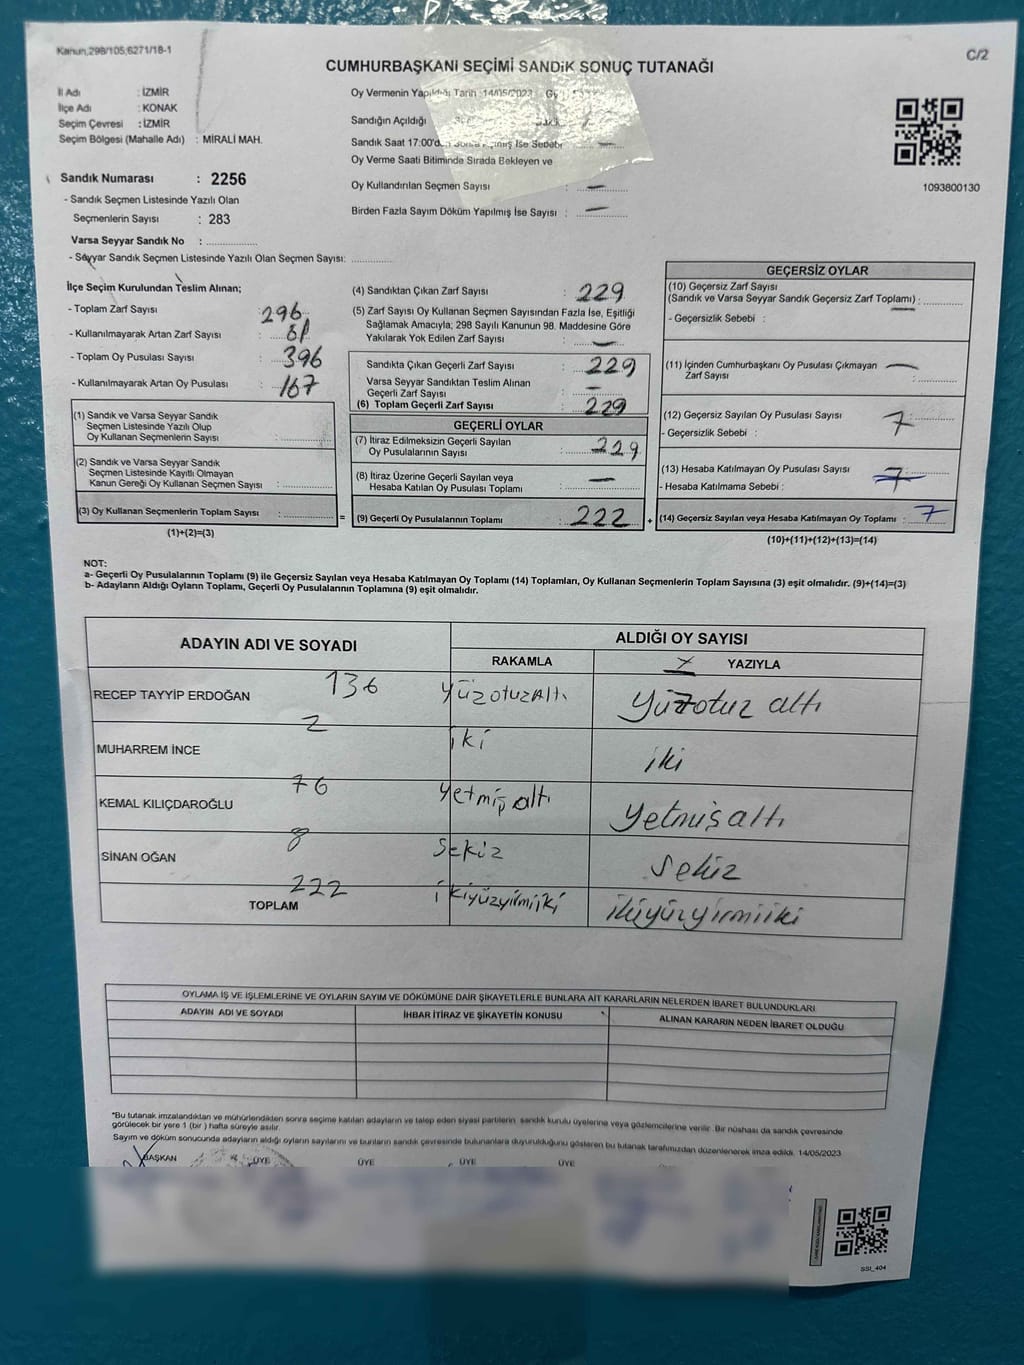 Kanun,298/105;6271/18-1
C/2
CUMHURBAŞKANI SEÇİMİ SANDIK SONUÇ TUTANAĞI
İl Adı : İZMİR
İlçe Adı : KONAK
Seçim Çevresi : İZMİR
Seçim Bölgesi (Mahalle Adı) : MİRALİ MAH.
Sandık Numarası : 2256
- Sandık Seçmen Listesinde Yazılı Olan
Seçmenlerin Sayısı : 283
Varsa Seyyar Sandık No :
- Seyyar Sandık Seçmen Listesinde Yazılı Olan Seçmen Sayısı:
Oy Vermenin Yapıldığı Tarih :14/05/2023
Sandığın Açıldığı
Sandık Saat 17:00'den Sonra Açılmış İse Sebebi —
Oy Verme Saati Bitiminde Sırada Bekleyen ve
Oy Kullandırılan Seçmen Sayısı : —
Birden Fazla Sayım Döküm Yapılmış İse Sayısı : —
1093800130
İlçe Seçim Kurulundan Teslim Alınan;
- Toplam Zarf Sayısı : 296
- Kullanılmayarak Artan Zarf Sayısı :
- Toplam Oy Pusulası Sayısı : 396
- Kullanılmayarak Artan Oy Pusulası : 167
(1) Sandık ve Varsa Seyyar Sandık
Seçmen Listesinde Yazılı Olup
Oy Kullanan Seçmenlerin Sayısı :
(2) Sandık ve Varsa Seyyar Sandık
Seçmen Listesinde Kayıtlı Olmayan
Kanun Gereği Oy Kullanan Seçmen Sayısı :
(3) Oy Kullanan Seçmenlerin Toplam Sayısı :
(1)+(2)=(3)
(4) Sandıktan Çıkan Zarf Sayısı : 229
(5) Zarf Sayısı Oy Kullanan Seçmen Sayısından Fazla İse, Eşitliği
Sağlamak Amacıyla; 298 Sayılı Kanunun 98. Maddesine Göre
Yakılarak Yok Edilen Zarf Sayısı : —
Sandıkta Çıkan Geçerli Zarf Sayısı : 229
Varsa Seyyar Sandıktan Teslim Alınan
Geçerli Zarf Sayısı : —
(6) Toplam Geçerli Zarf Sayısı : 229
GEÇERLİ OYLAR
(7) İtiraz Edilmeksizin Geçerli Sayılan
Oy Pusulalarının Sayısı : 229
(8) İtiraz Üzerine Geçerli Sayılan veya
Hesaba Katılan Oy Pusulası Toplamı : —
= (9) Geçerli Oy Pusulalarının Toplamı : 222 +
GEÇERSİZ OYLAR
(10) Geçersiz Zarf Sayısı
(Sandık ve Varsa Seyyar Sandık Geçersiz Zarf Toplamı) : —
- Geçersizlik Sebebi :
(11) İçinden Cumhurbaşkanı Oy Pusulası Çıkmayan —
Zarf Sayısı :
(12) Geçersiz Sayılan Oy Pusulası Sayısı : 7
- Geçersizlik Sebebi :
(13) Hesaba Katılmayan Oy Pusulası Sayısı : 7
- Hesaba Katılmama Sebebi :
(14) Geçersiz Sayılan veya Hesaba Katılmayan Oy Toplamı : 7
(10)+(11)+(12)+(13)=(14)
NOT:
a- Geçerli Oy Pusulalarının Toplamı (9) ile Geçersiz Sayılan veya Hesaba Katılmayan Oy Toplamı (14) Toplamları, Oy Kullanan Seçmenlerin Toplam Sayısına (3) eşit olmalıdır. (9)+(14)=(3)
b- Adayların Aldığı Oyların Toplamı, Geçerli Oy Pusulalarının Toplamına (9) eşit olmalıdır.
ADAYIN ADI VE SOYADI
ALDIĞI OY SAYISI
RAKAMLA YAZIYLA
RECEP TAYYİP ERDOĞAN 136 yüzotuzaltı yüzotuz altı
MUHARREM İNCE 2 iki iki
KEMAL KILIÇDAROĞLU 76 yetmiş altı yetmiş altı
SİNAN OĞAN 8 sekiz sekiz
TOPLAM 222 ikiyüzyirmiiki ikiyüzyirmiiki
OYLAMA İŞ VE İŞLEMLERİNE VE OYLARIN SAYIM VE DÖKÜMÜNE DAİR ŞİKAYETLERLE BUNLARA AİT KARARLARIN NELERDEN İBARET BULUNDUKLARI
ADAYIN ADI VE SOYADI İHBAR İTİRAZ VE ŞİKAYETİN KONUSU ALINAN KARARIN NEDEN İBARET OLDUĞU
*Bu tutanak imzalandıktan ve mühürlendikten sonra seçime katılan adayların ve talep eden siyasi partilerin sandık kurulu üyelerine veya gözlemcilerine verilir. Bir nüshası da sandık çevresinde
görülecek bir yere 1 (bir ) hafta süreyle asılır.
Sayım ve döküm sonucunda adayların aldığı oyların sayılarını ve bunların sandık çevresinde bulunanlara duyurulduğunu gösteren bu tutanak tarafımızdan düzenlenerek imza edildi. 14/05/2023
BAŞKAN ÜYE ÜYE ÜYE ÜYE
SSI_404